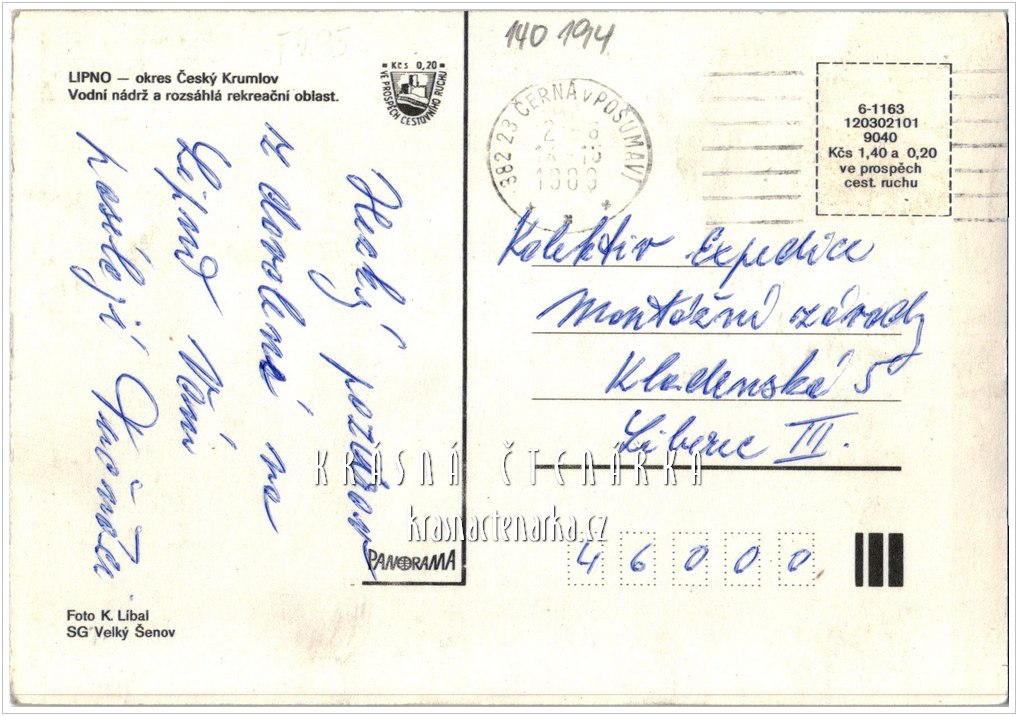 140 194
LIPNO — okres Český Krumlov
Vodní nádrž a rozsáhlá rekreační oblast.
Kčs 0,20
VE PROSPĚCH CESTOVNÍHO RUCHU
382 23 ČERNÁ v POŠUMAVÍ
6-1163
120302101
9040
Kčs 1,40 a 0,20
ve prospěch
cest. ruchu
Hezký pozdrav
z dovolené na
Lipně Vám
posílají
Kolektiv Expedice
Montážní závody
Kladenská 5
Liberec III.
KRÁSNÁ ČTENÁRKA
krasnactenarka.cz
PANORAMA
46000
Foto K. Líbal
SG Velký Šenov